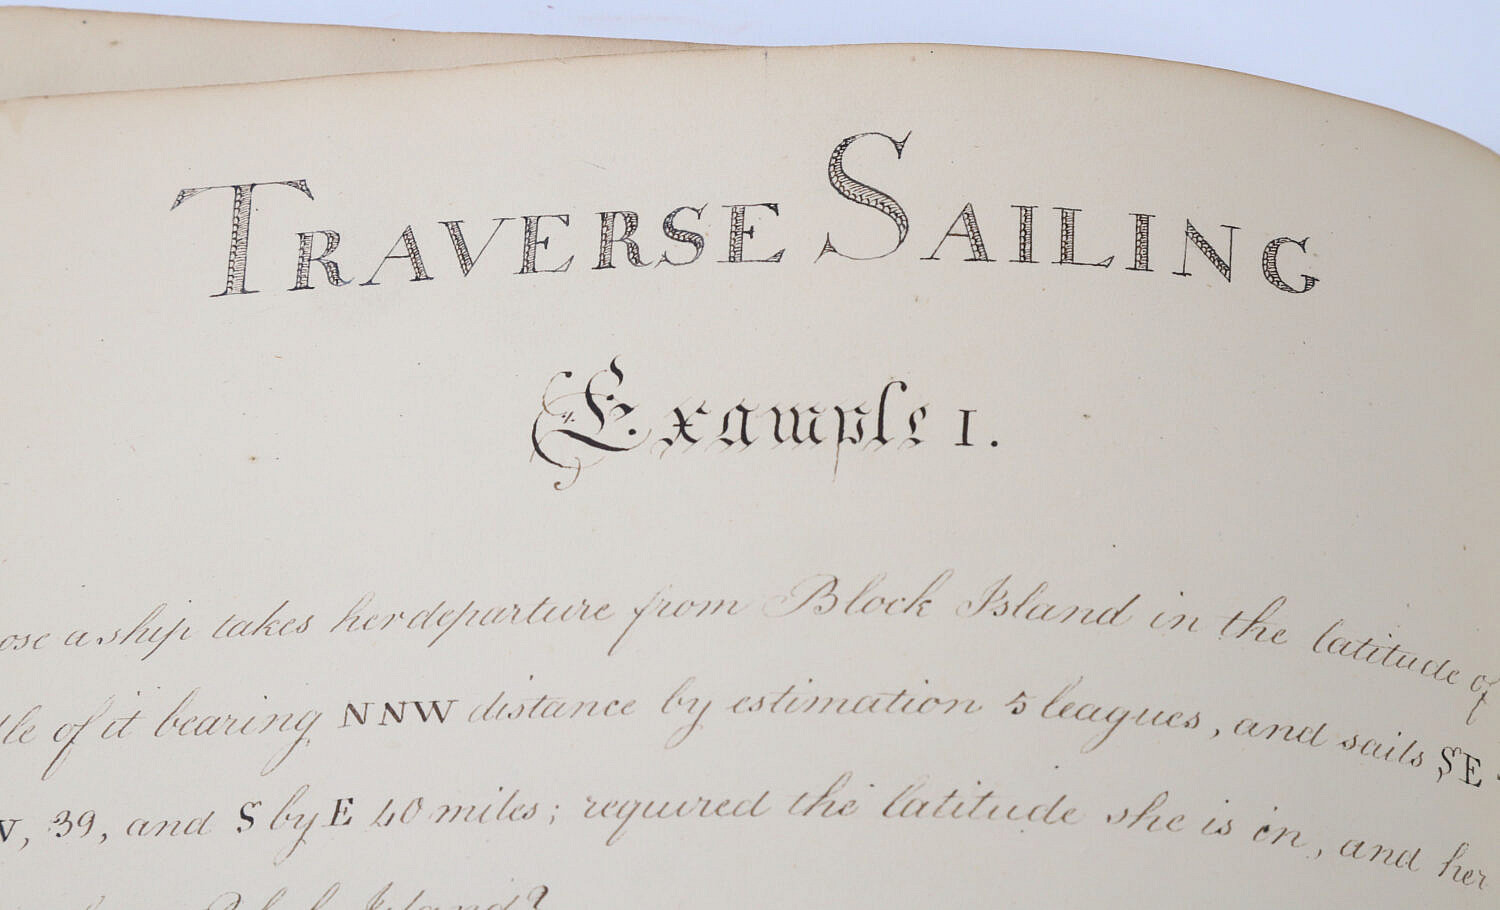 TRAVERSE SAILING
Example 1.
ose a ship takes her departure from Block Island in the latitude of
dle of it bearing NNW distance by estimation 5 leagues, and sails SE
W, 39, and S by E 40 miles; required the latitude she is in, and her
Block Island?